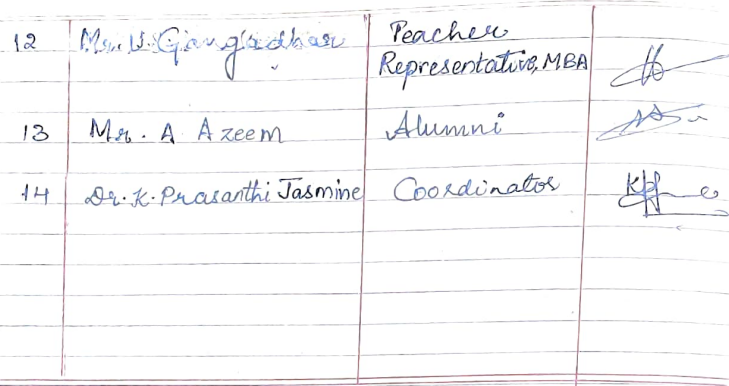 12 Mr. V. Gangadhar Teacher
Representative, MBA
13 Mr. A Azeem Alumni
14 Dr. K. Prasanthi Jasmine Coordinator